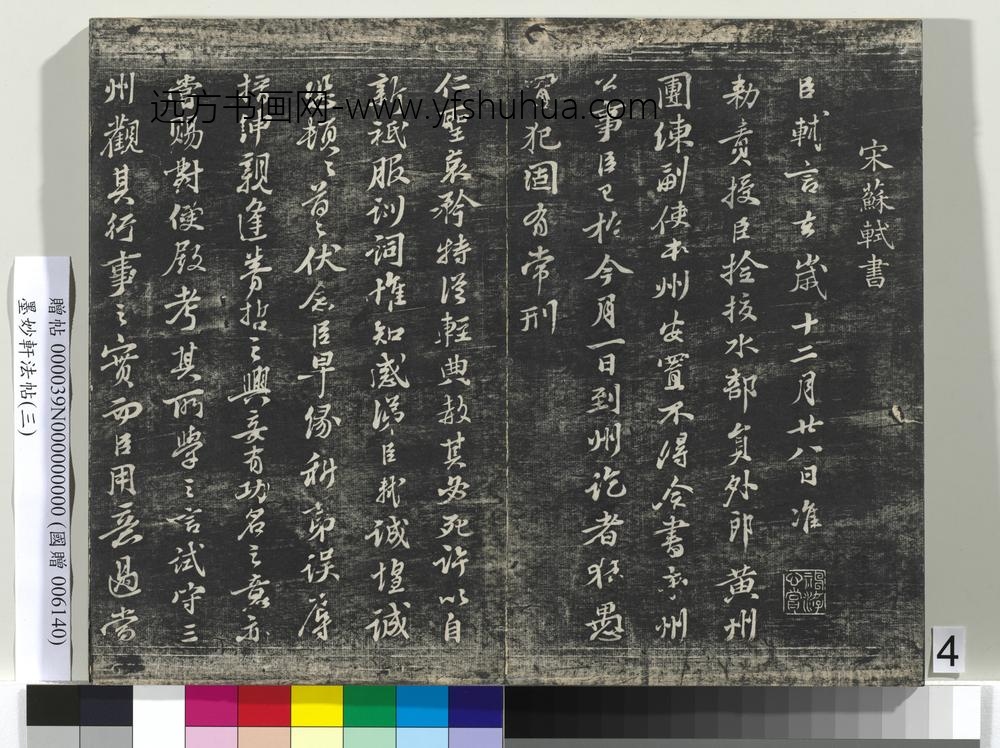 宋蘇軾書
臣軾言去歲十二月廿八日准
勅責授臣捡校水部負外郎黄州
團練副使本州安置不得佥書本州
公事臣已於今月一日到州訖者狂愚
冒犯固有常刑
仁聖哀矜特從輕典赦其必死許以自
新祗服訓詞惟知感涕臣軾誠惶誠
恐頓〻首〻伏念臣早緣科第誤辱
搢紳親逢睿哲之興妄有功名之意亦
嘗賜對便殿考其所學之言試守三
州觀其行事之實而臣用意過當
远方书画网-www.yfshuhua.com
贈帖 000039N000000000 (國贈 006140)
墨妙軒法帖(三)
4